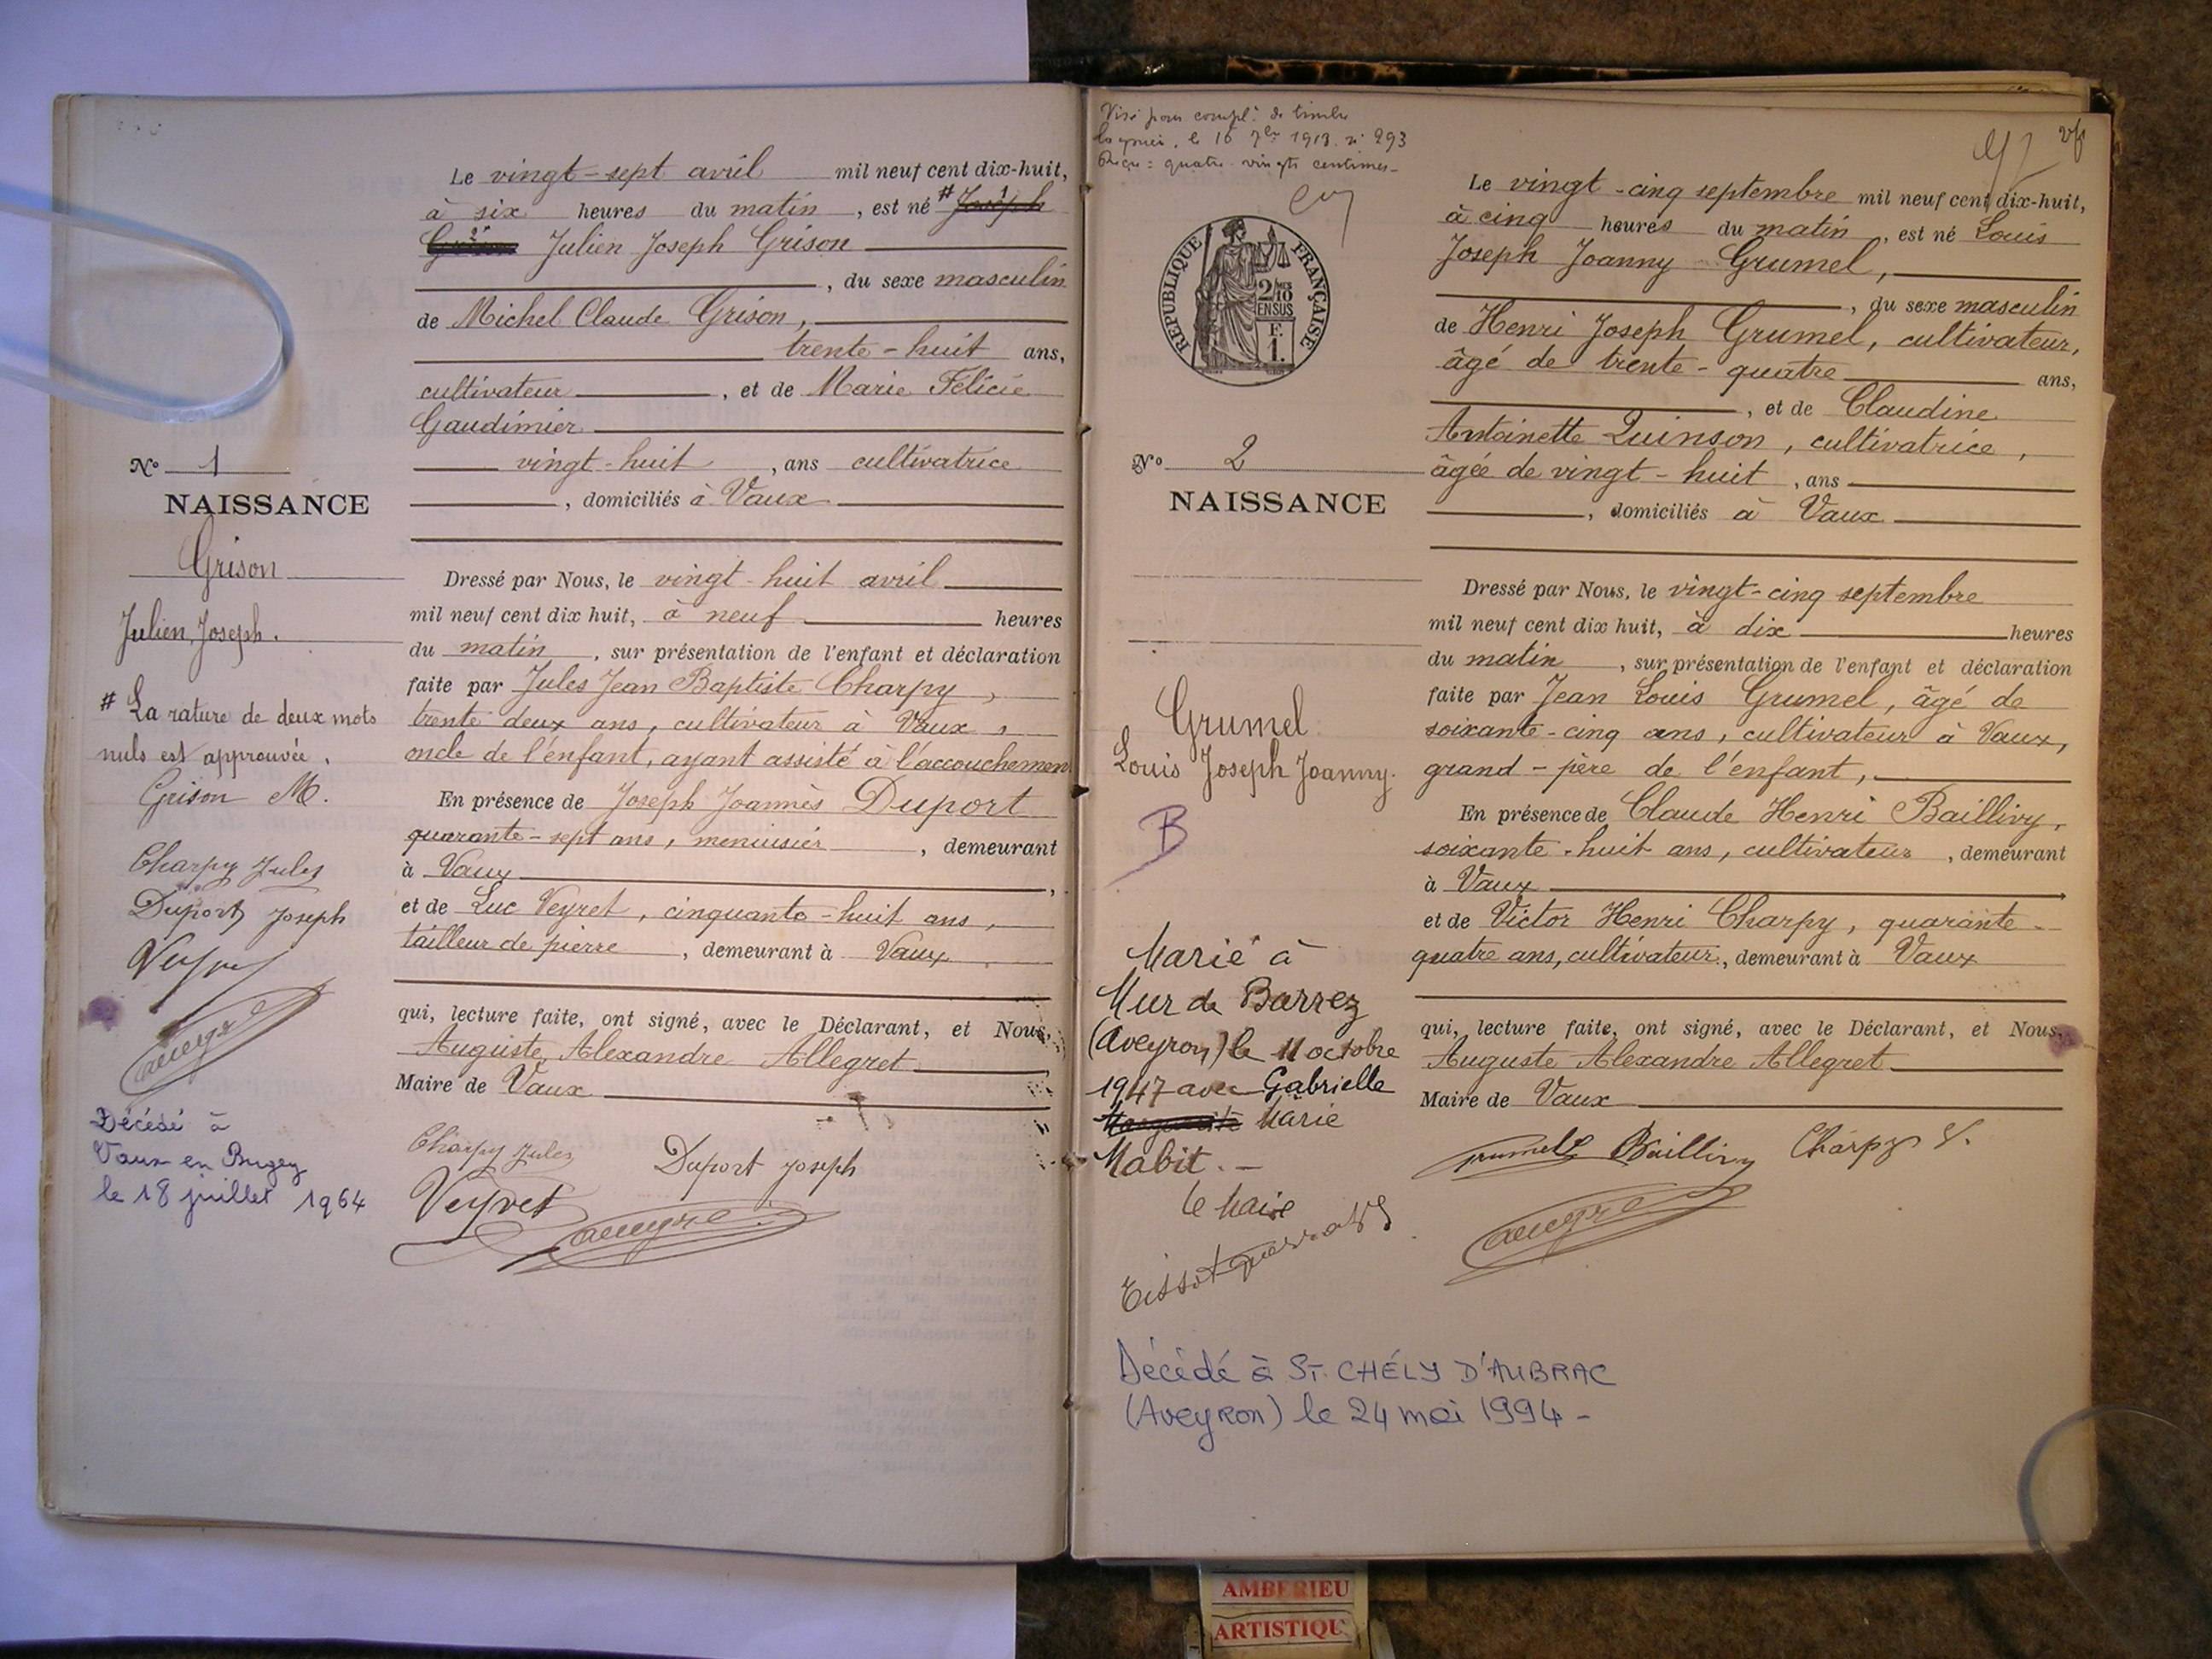 Le vingt-sept avril mil neuf cent dix-huit,
à six heures du matin, est né # Joseph
Julien Joseph Grison
, du sexe masculin
de Michel Claude Grison,
trente-huit ans,
cultivateur, et de Marie Félicie
Gaudimier
vingt-huit, ans cultivatrice
, domiciliés à Vaux
No 1
NAISSANCE
Grison
Julien, Joseph.
# La rature de deux mots
nuls est approuvée.
Grison M.
Charpy Jules
Duport Joseph
Décédé à
Vaux en Bugey
le 18 juillet 1964
Dressé par Nous, le vingt-huit avril
mil neuf cent dix huit, à neuf heures
du matin, sur présentation de l'enfant et déclaration
faite par Jules Jean Baptiste Charpy,
trente deux ans, cultivateur à Vaux,
oncle de l'enfant, ayant assisté à l'accouchemen
En présence de Joseph Joannès Duport
quarante-sept ans, menuisier, demeurant
à Vaux,
et de Luc Veyret, cinquante-huit ans,
tailleur de pierre, demeurant à Vaux
qui, lecture faite, ont signé, avec le Déclarant, et Nous,
Auguste Alexandre Allegret
Maire de Vaux
Charpy Jules
Duport Joseph
Veyret
Visé pour compl. de timbre
le 16 7bre 1918. n° 293
Reçu = quatre-vingts centimes
REPUBLIQUE FRANÇAISE
2/10 MES
EN SUS
F.
1.
No 2
NAISSANCE
Grumel
Louis Joseph Joanny.
B
Marié à
Mur de Barrez
(Aveyron) le 11 octobre
1947 avec Gabrielle
Marguerite Marie
Mabit.-
Le Maire
Décédé à ST. CHÉLY D'AUBRAC
(Aveyron) le 24 mai 1994-
Le vingt-cinq septembre mil neuf cent dix-huit,
à cinq heures du matin, est né Louis
Joseph Joanny Grumel,
, du sexe masculin
de Henri Joseph Grumel, cultivateur,
âgé de trente-quatre ans,
, et de Claudine
Antoinette Quinson, cultivatrice,
âgée de vingt-huit, ans
, domiciliés à Vaux
Dressé par Nous, le vingt-cinq septembre
mil neuf cent dix huit, à dix heures
du matin, sur présentation de l'enfant et déclaration
faite par Jean Louis Grumel, âgé de
soixante-cinq ans, cultivateur à Vaux,
grand-père de l'enfant,
En présence de Claude Henri Baillivy,
soixante-huit ans, cultivateur, demeurant
à Vaux
et de Victor Henri Charpy, quarante-
quatre ans, cultivateur, demeurant à Vaux
qui, lecture faite, ont signé, avec le Déclarant, et Nous,
Auguste Alexandre Allegret
Maire de Vaux
Grumel Baillivy Charpy V.
AMBERIEU
ARTISTIQU